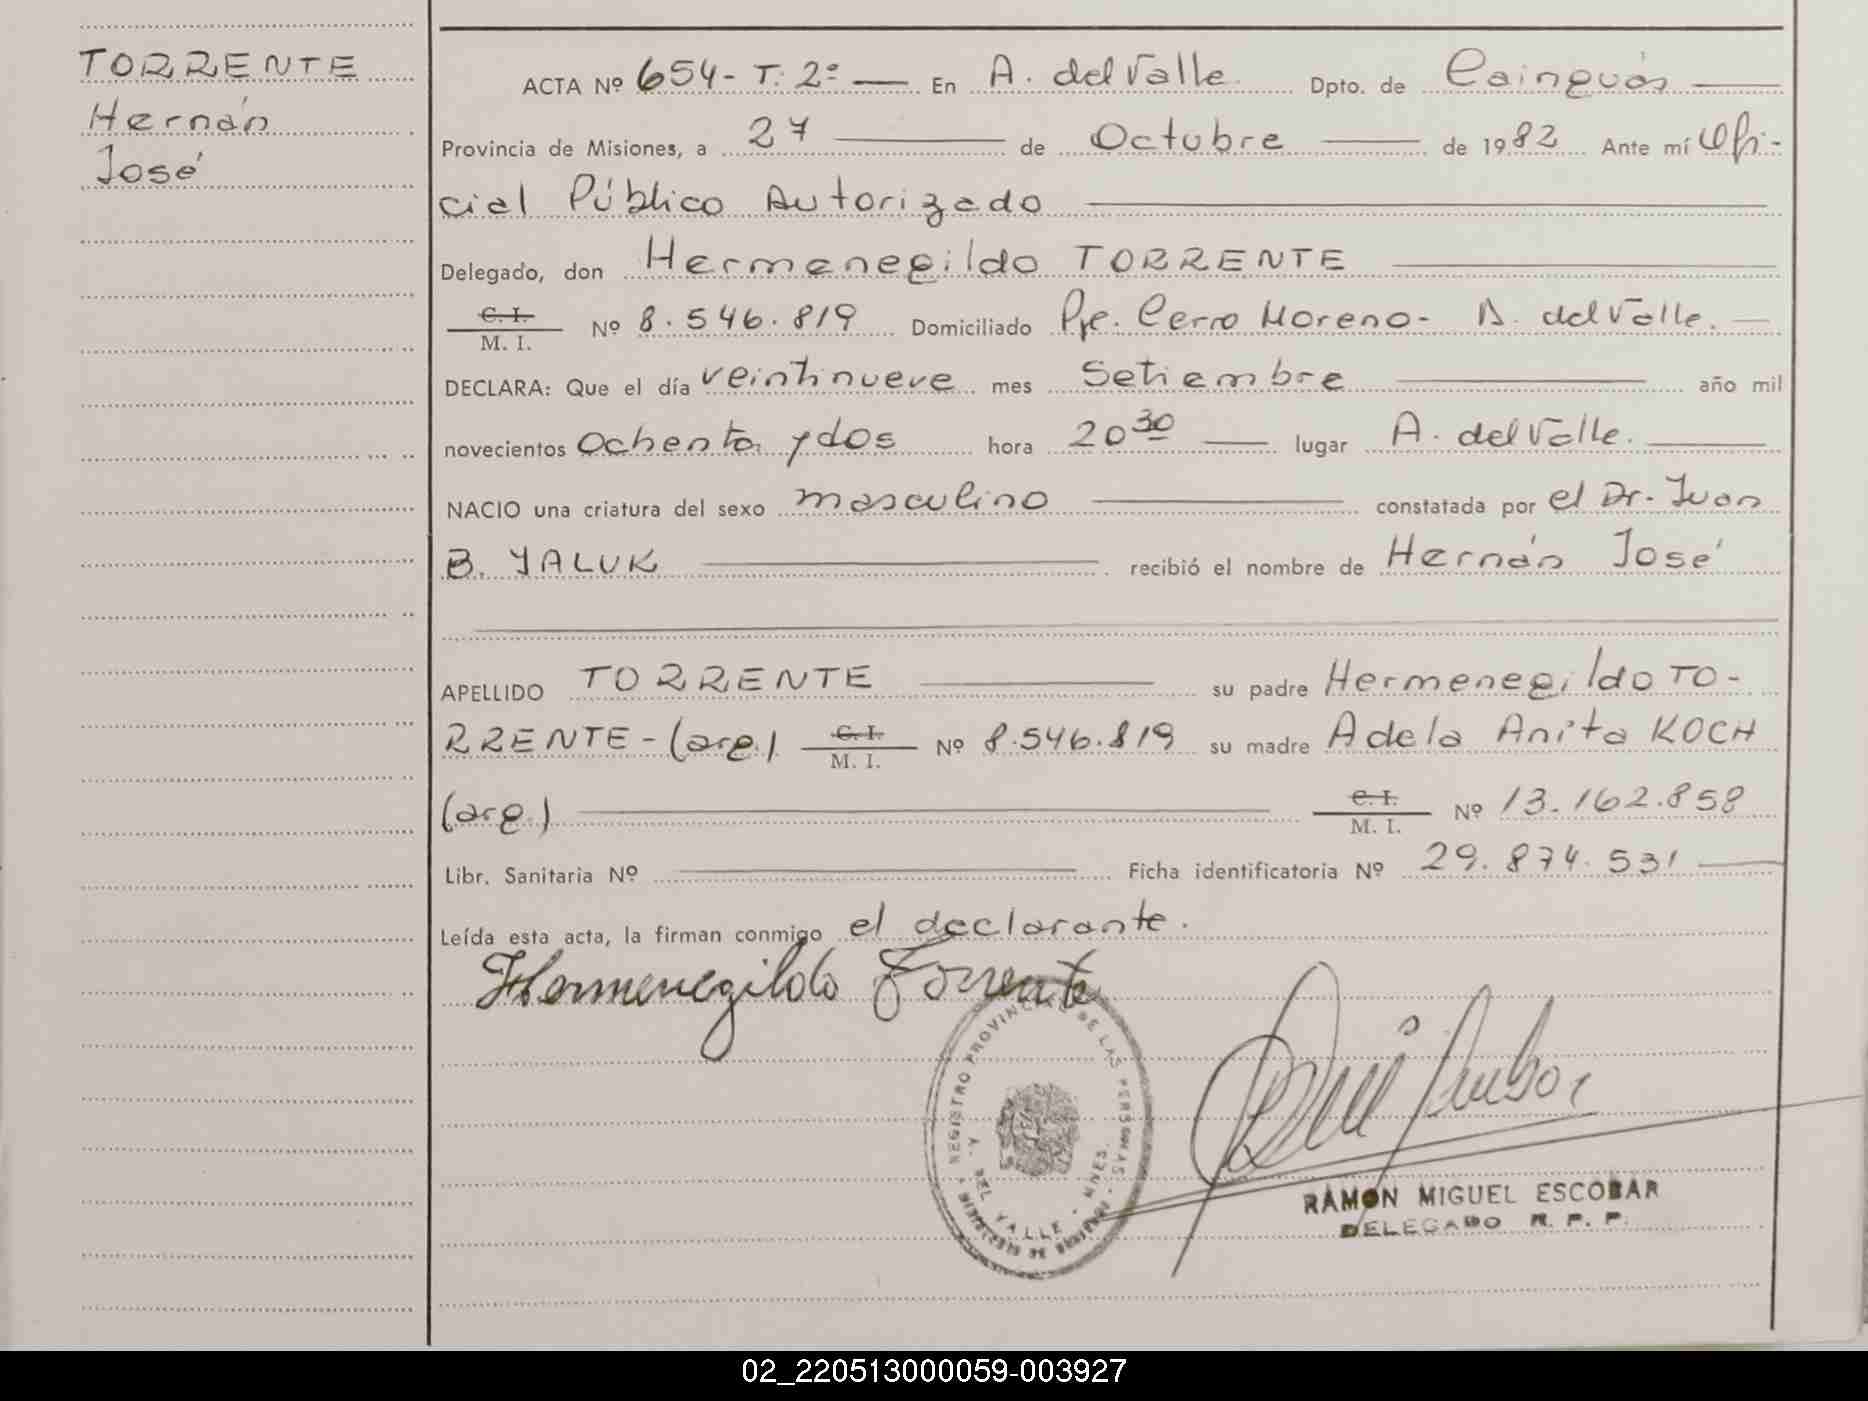 TORRENTE
Hernán
José
ACTA Nº 654- T. 2º — En A. del Valle Dpto. de Cainguás
Provincia de Misiones, a 27 de Octubre de 1982 Ante mí Ofi-
cial Público Autorizado
Delegado, don Hermenegildo TORRENTE
C. I.
M. I. Nº 8.546.819 Domiciliado Pje. Cerro Moreno- A. del Valle.
DECLARA: Que el día veintinueve mes Setiembre año mil
novecientos ochenta y dos hora 20 30 lugar A. del Valle.
NACIO una criatura del sexo masculino constatada por el Dr. Juan
B. YALUK recibió el nombre de Hernán José
APELLIDO TORRENTE su padre Hermenegildo TO-
RRENTE - (arg.) C. I. M. I. Nº 8.546.819 su madre Adela Anita KOCH
(arg.) C. I. M. I. Nº 13.162.858
Libr. Sanitaria Nº Ficha identificatoria Nº 29.874.531
Leída esta acta, la firman conmigo el declarante.
Hermenegildo Torrente
REGISTRO PROVINCIAL DE LAS PERSONAS
A. DEL VALLE - MNES.
RAMON MIGUEL ESCOBAR
DELEGADO R. P. P.
02_220513000059-003927